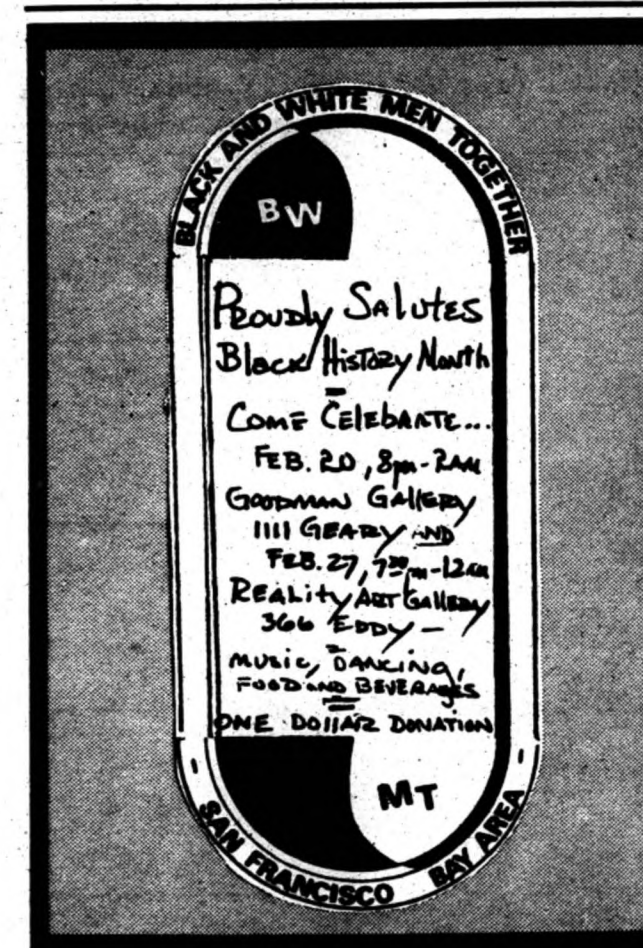 BLACK AND WHITE MEN TOGETHER
BW
Proudly Salutes
Black History Month
Come Celebrate...
FEB. 20, 8pm-2AM
GOODMAN GALLERY
1111 GEARY AND
FEB. 27, 730pm-12AM
REALITY ART GALLERY
366 EDDY —
MUSIC, DANCING,
FOOD AND BEVERAGES
ONE DOLLAR DONATION
MT
- SAN FRANCISCO BAY AREA -